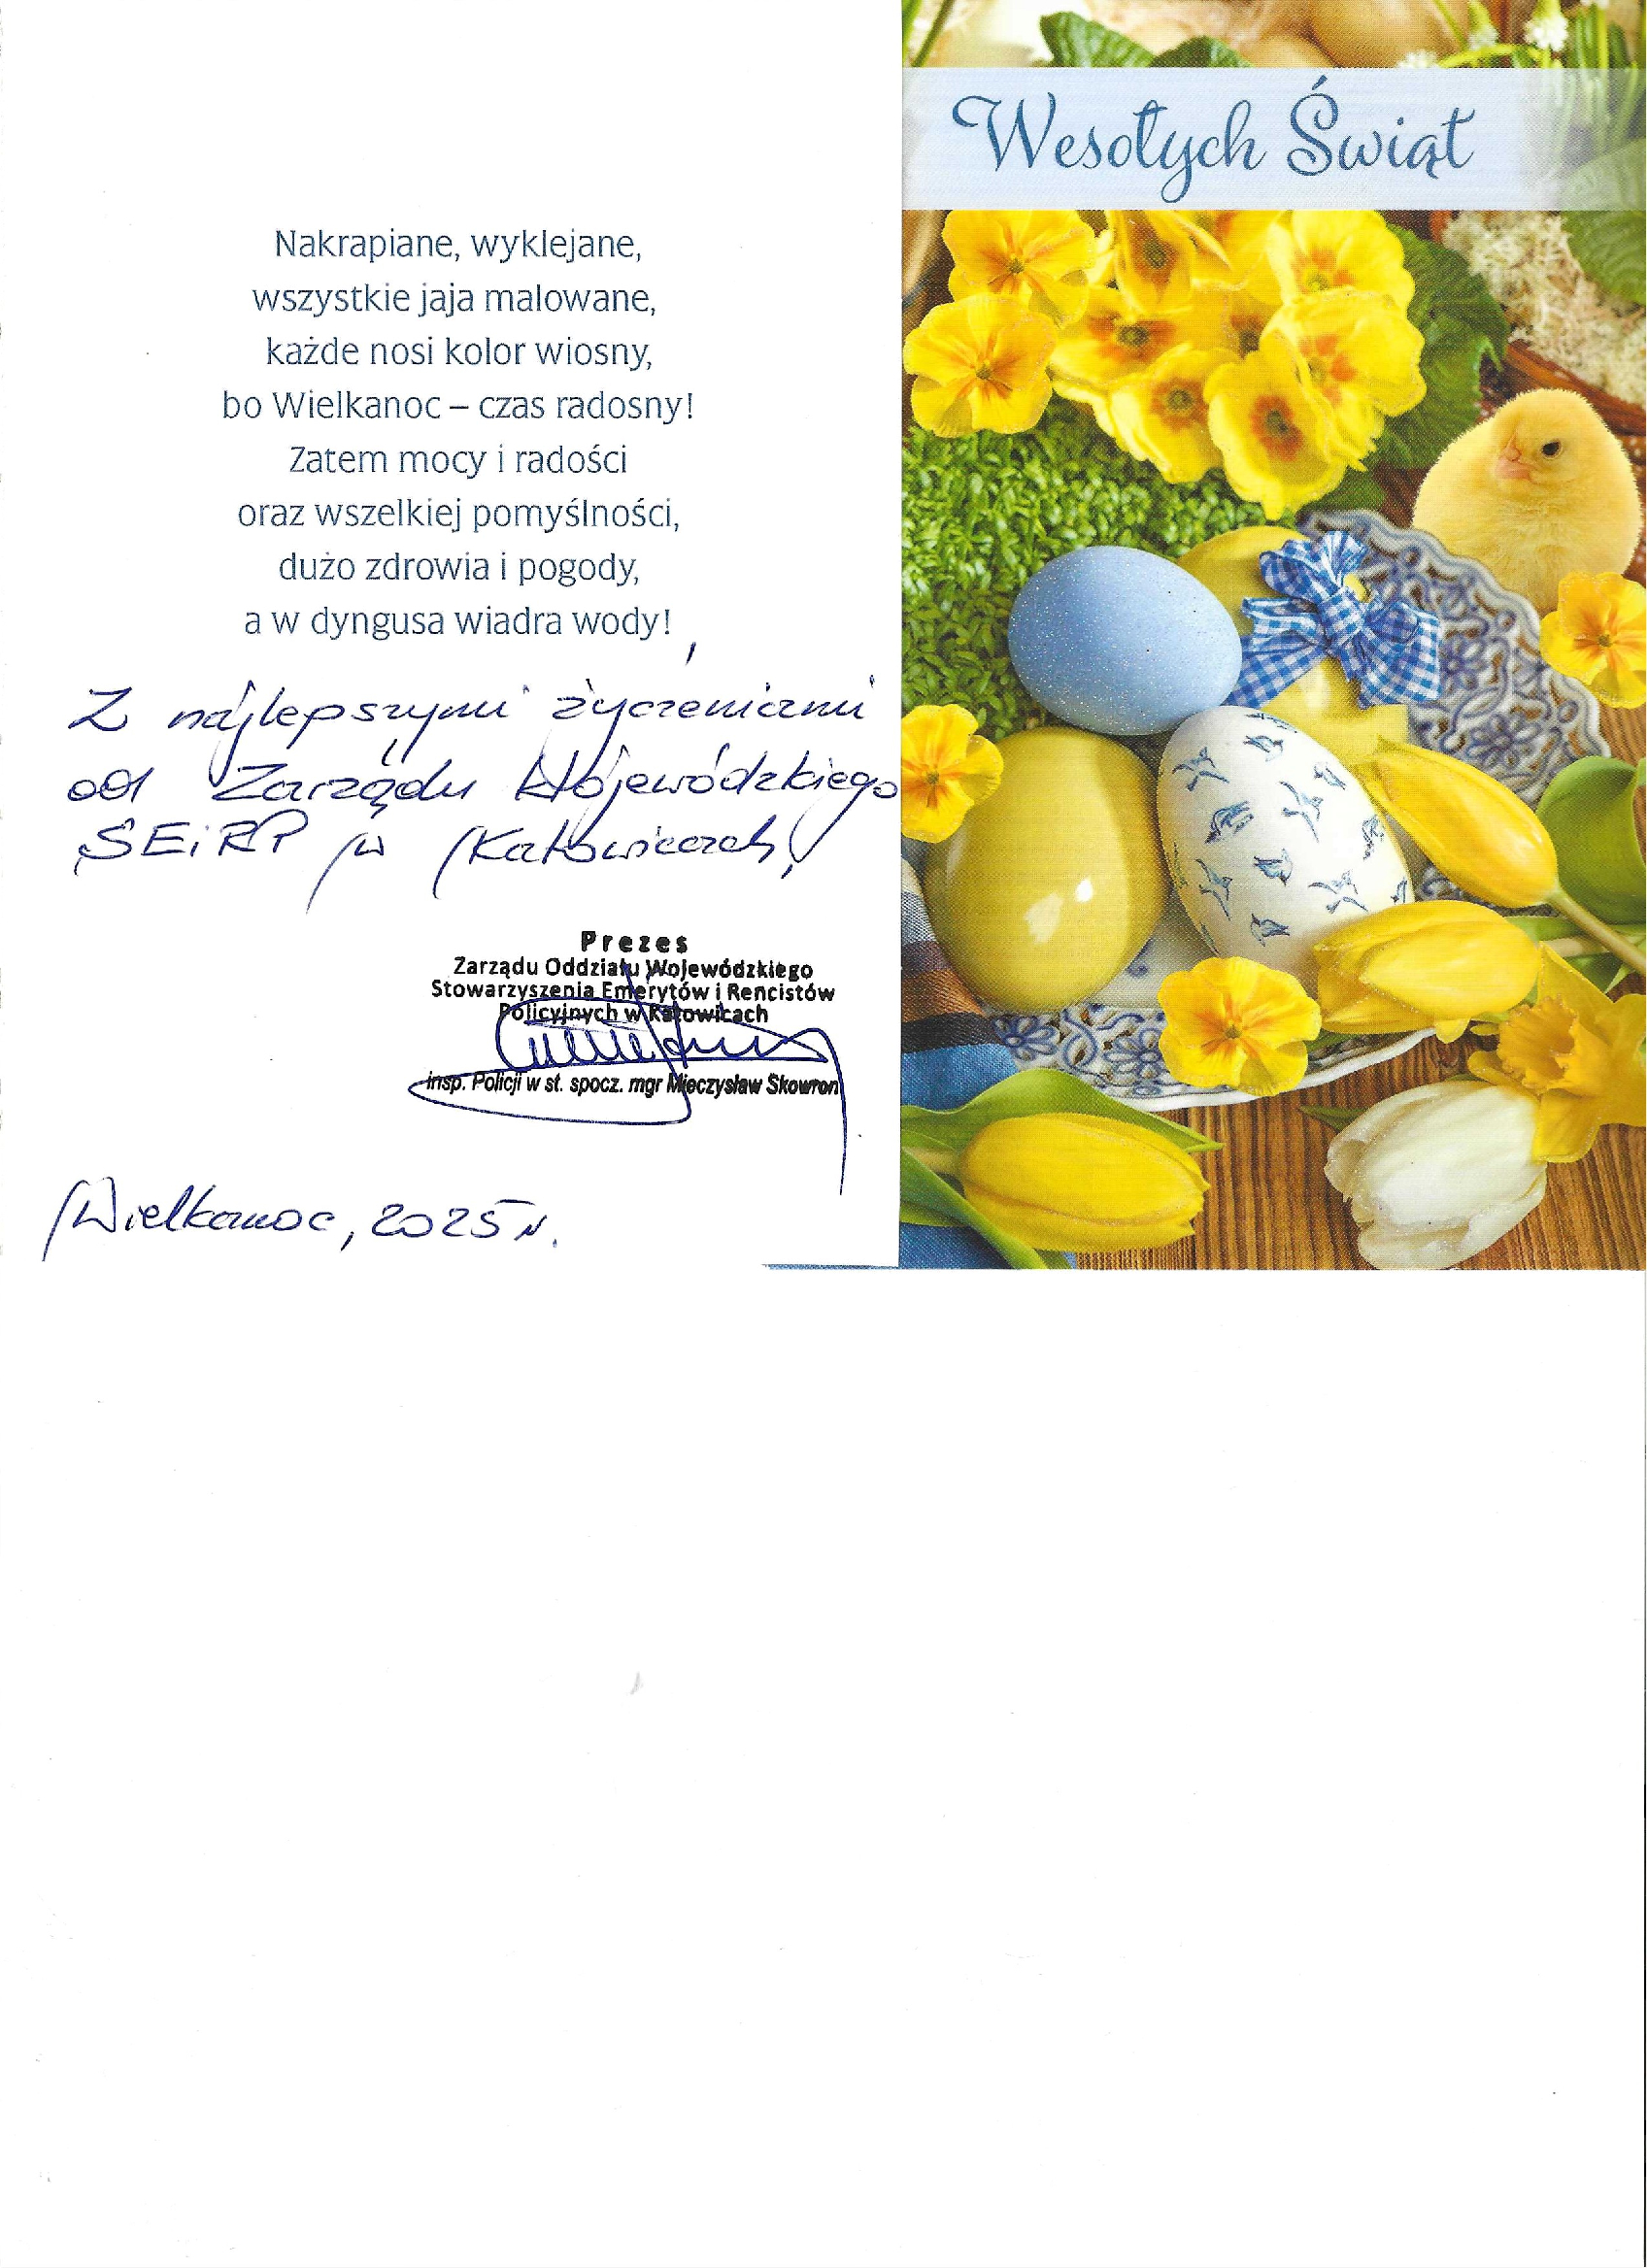 Wesołych Świąt
Nakrapiane, wyklejane,
wszystkie jaja malowane,
każde nosi kolor wiosny,
bo Wielkanoc – czas radosny!
Zatem mocy i radości
oraz wszelkiej pomyślności,
dużo zdrowia i pogody,
a w dyngusa wiadra wody!
Z najlepszymi życzeniami
od Zarządu Wojewódzkiego
SEiRP w Katowicach!
Prezes
Zarządu Oddziału Wojewódzkiego
Stowarzyszenia Emerytów i Rencistów
Policyjnych w Katowicach
insp. Policji w st. spocz. mgr Mieczysław Skowron
Wielkanoc, 2025 r.